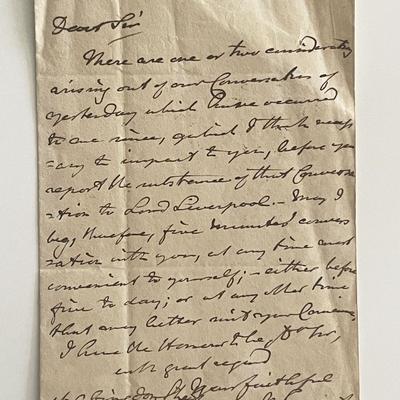 Dear Sir
There are one or two considerations
arising out of our Conversation of
yesterday which have occurred
to me since, & which I think necess
=ary to impart to you, before you
report the substance of that Conversa
=tion to Lord Liverpool. – May I
beg, therefore, five minutes convers
=ation with you, at any time most
convenient to yourself; – either before
five to day; or at any other time
that may better suit your Convenience
I have the Honour to be, Dr Sir,
with great regard
Your faithful